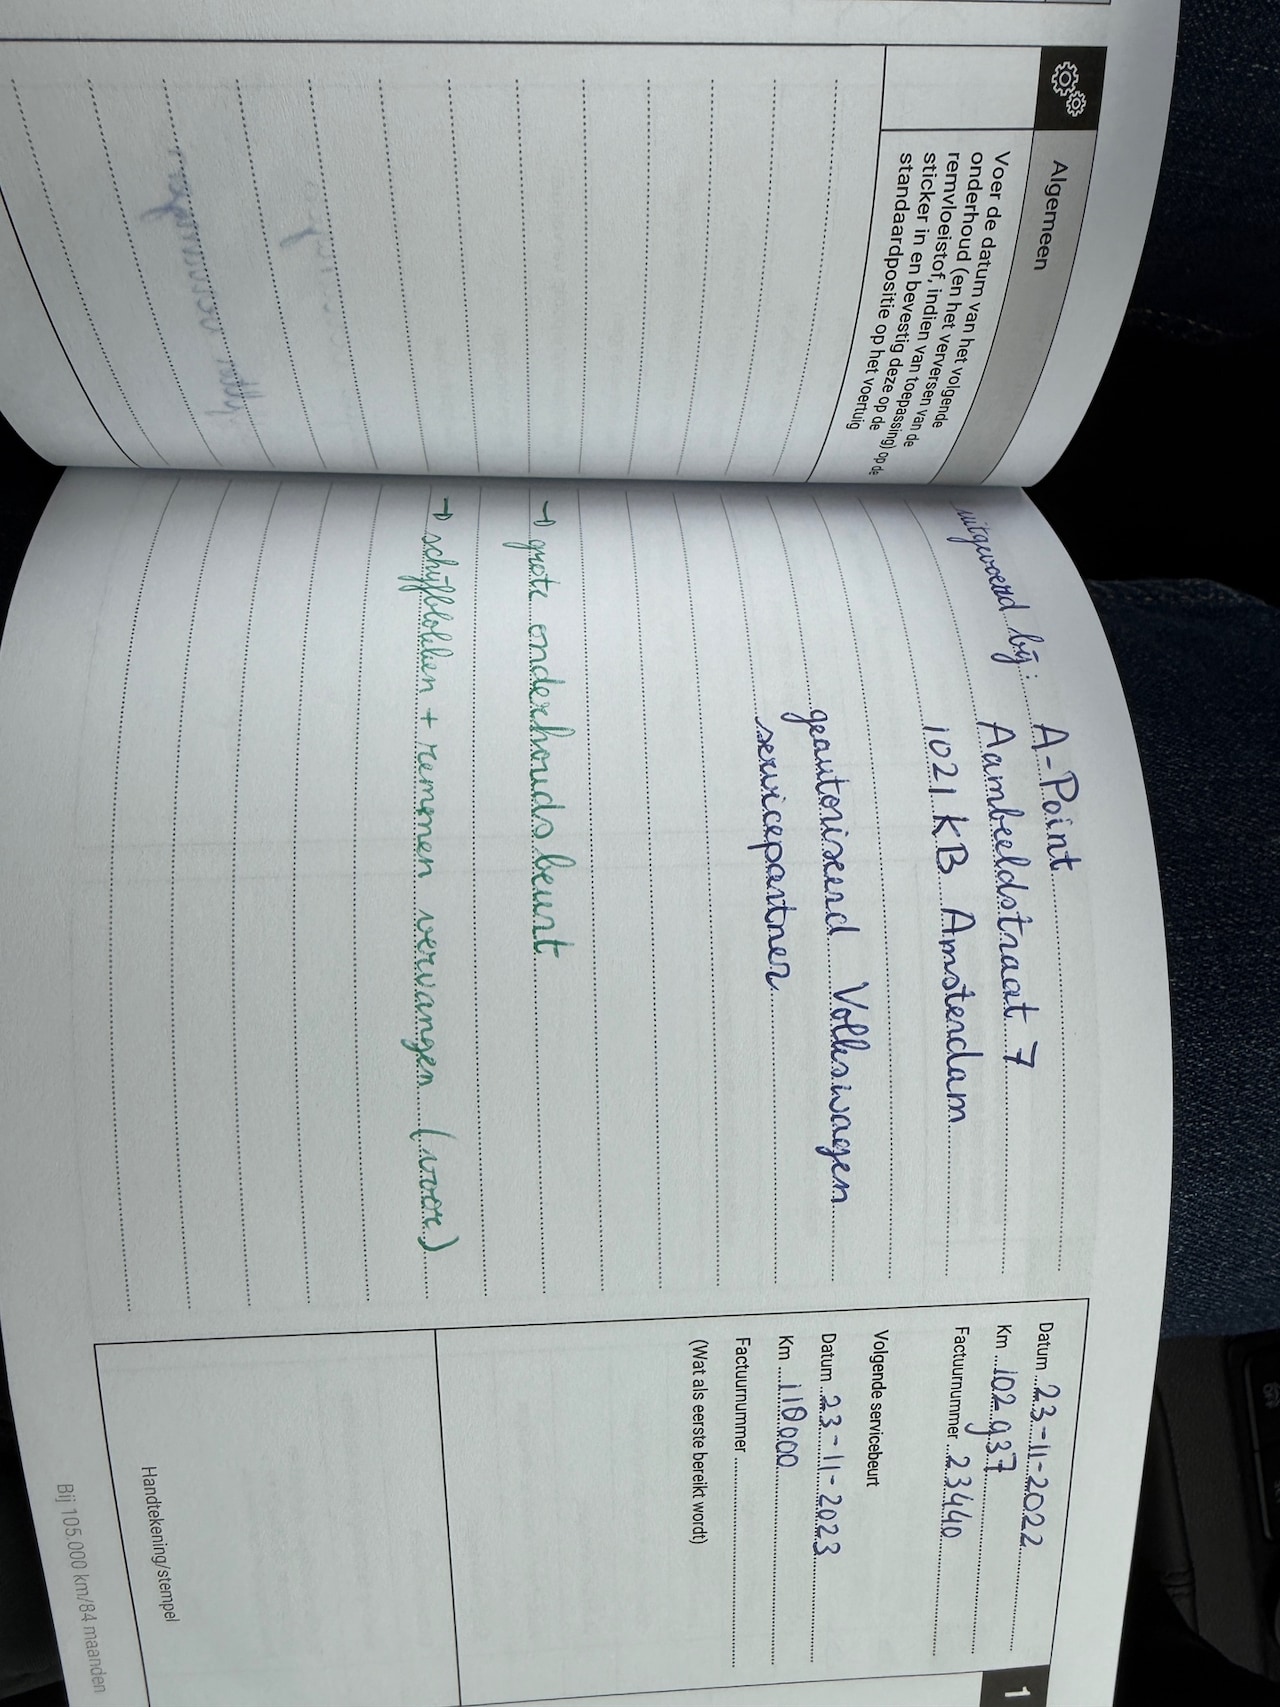 Algemeen
Voer de datum van het volgende
onderhoud (en het verversen van de
remvloeistof, indien van toepassing) op de
sticker in en bevestig deze op de
standaardpositie op het voertuig
uitgevoerd bij: A-Point
Aambeeldstraat 7
1021 KB Amsterdam
geautoriseerd Volkswagen
servicepartner
→ grote onderhoudsbeurt
→ schijfblokken + remmen vervangen (voor)
1
Datum 23-11-2022
Km 102937
Factuurnummer 23440
Volgende servicebeurt
Datum 23-11-2023
Km 110000
Factuurnummer
(Wat als eerste bereikt wordt)
Handtekening/stempel
Bij 105.000 km/84 maanden